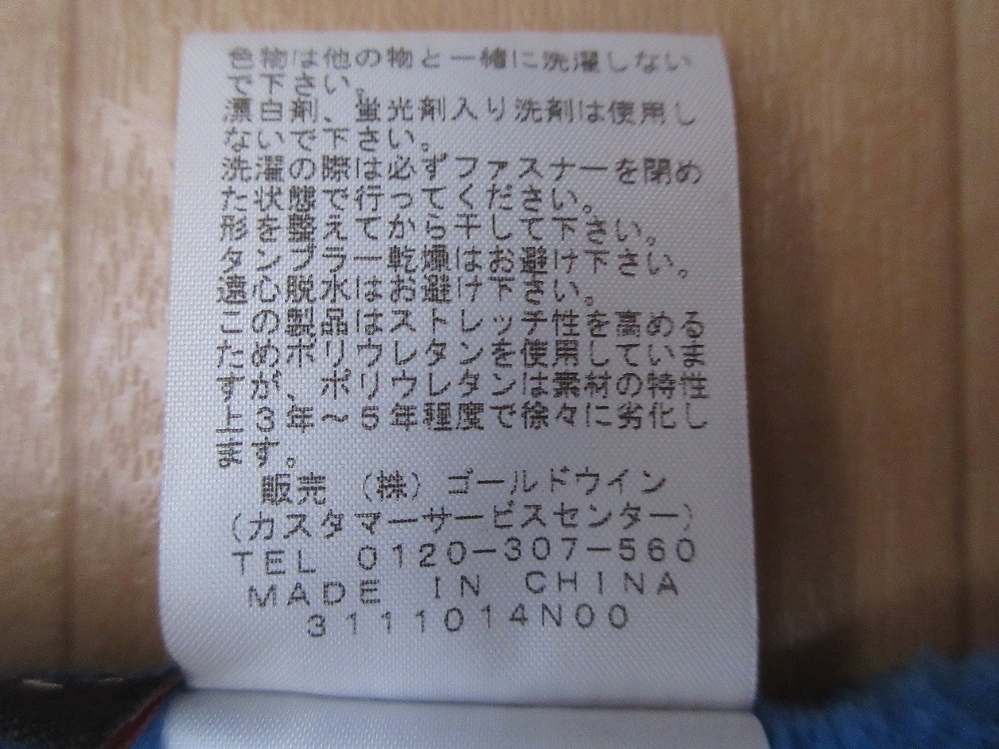 色物は他の物と一緒に洗濯しない
で下さい。
漂白剤、蛍光剤入り洗剤は使用し
ないで下さい。
洗濯の際は必ずファスナーを閉め
た状態で行ってください。
形を整えてから干して下さい。
タンブラー乾燥はお避け下さい。
遠心脱水はお避け下さい。
この製品はストレッチ性を高める
ためポリウレタンを使用していま
すが、ポリウレタンは素材の特性
上3年～5年程度で徐々に劣化し
ます。
販売 (株) ゴールドウイン
(カスタマーサービスセンター)
TEL 0120-307-560
MADE IN CHINA
3111014N00